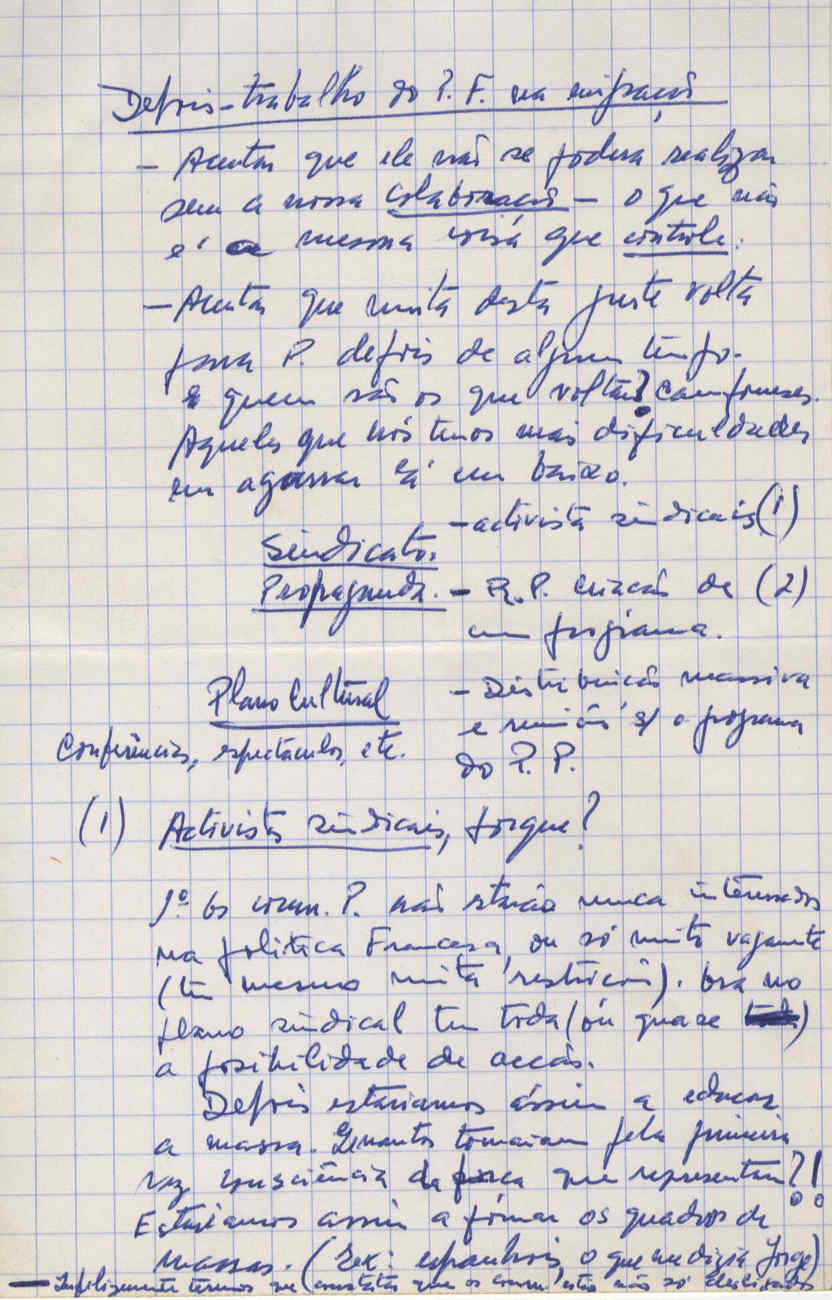 Depois - trabalho do P. F. na migração
- Aceitar que ele não se poderá realizar
sem a nossa colaboração - o que não
é a mesma coisa que controle.
- Aceitar que muita desta gente volta
para P. depois de algum tempo.
E quem são os que voltam? Camponeses.
Aqueles que nós temos mais dificuldades
em agarrar lá em baixo.
- activistas sindicais (1)
Sindicatos.
Propaganda. - R.P. criação de (2)
um programa.
Plano Cultural
- Distribuição massiva
e reunião s/ o programa
do P. P.
Conferências, espectáculos, etc.
(1) Activistas sindicais, porque?
1º Os cam. P. não estarão nunca interessados
na política Francesa, ou só muito vagamente
(tem mesmo muita restrição). Ora no
plano sindical tem toda (ou quase)
a posibilidade de acção.
Depois estariamos assim a educar
a massa. Quantos tomariam pela primeira
vez consciência da força que representam?!
Estariamos assim a formar os quadros de
massas. (Ex: espanhois, o que me dizia Jorge)
- Infelizmente temos que constatar que os cam. estão não só desligados